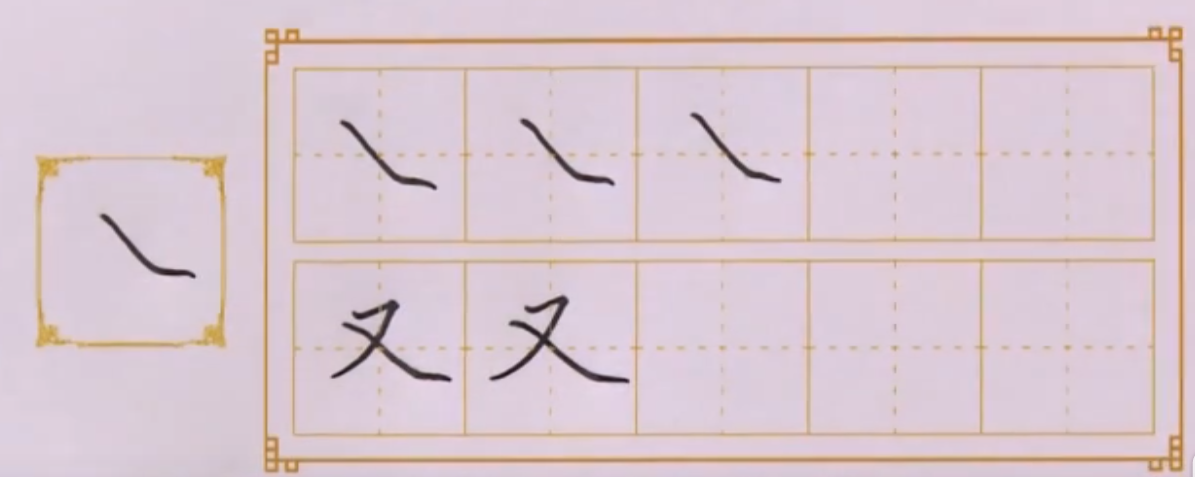 ㇏
㇏ ㇏ ㇏
又 又